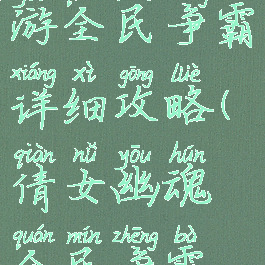 游全民争霸
xiáng xì gōng lüè
详细攻略(
qiàn nǚ yōu hún
倩女幽魂
quán mín zhēng bà
全民争霸